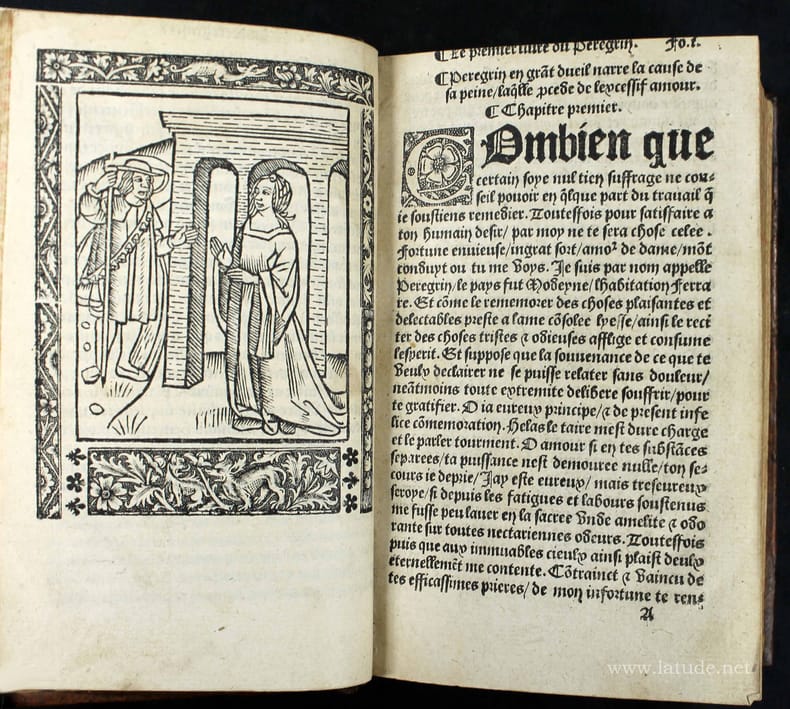 ¶Le premier liure du Peregrin. Fo.i.
¶Peregrin en grãt dueil narre la cause de
sa peine/laq̃lle ꝓcede de lexcessif amour.
¶Chapitre premier.
COmbien que
certain soye nul tien suffrage ne con⸗
seil pouoir en q̃lque part du trauail q̃
ie soustiens remedier. Toutesfois pour satisfaire a
ton humain desir/ par moy ne te sera chose celee.
Fortune enuieuse/ingrat sort/amoꝛ de dame/mõt
conduyt ou tu me voys. Je suis par nom appelle
Peregrin/le pays fut Modeyne/lhabitation Ferra
re. Et cõme le rememorer des choses plaisantes et
delectables preste a lame cõsolee lyesse/ainsi le reci
ter des choses tristes ⁊ odieuses afflige et consume
lesperit. Et suppose que la souuenance de ce que te
veulx declairer ne se puisse relater sans douleur/
neãtmoins toute extremite delibere souffrir/pour
te gratifier. O ia eureux principe/⁊ de present infe
lice cõmemoration. Helas le taire mest dure charge
et le parler tourment. O amour si en tes substãces
separees/ta puissance nest demouree nulle/ton se⸗
cours ie deprie/Jay este eureux/ mais treseureux
seroye/si depuis les fatigues et labours soustenus
me fusse peu lauer en la sacree vnde amelite ⁊ odo
rante sur toutes nectariennes odeurs. Toutesfois
puis que aux immuables cieulx ainsi plaist deulx
eternellemẽt me contente. Cõtrainct ⁊ vaincu de
tes efficassimes prieres/de mon infortune te ren⸗
A
www.latude.net